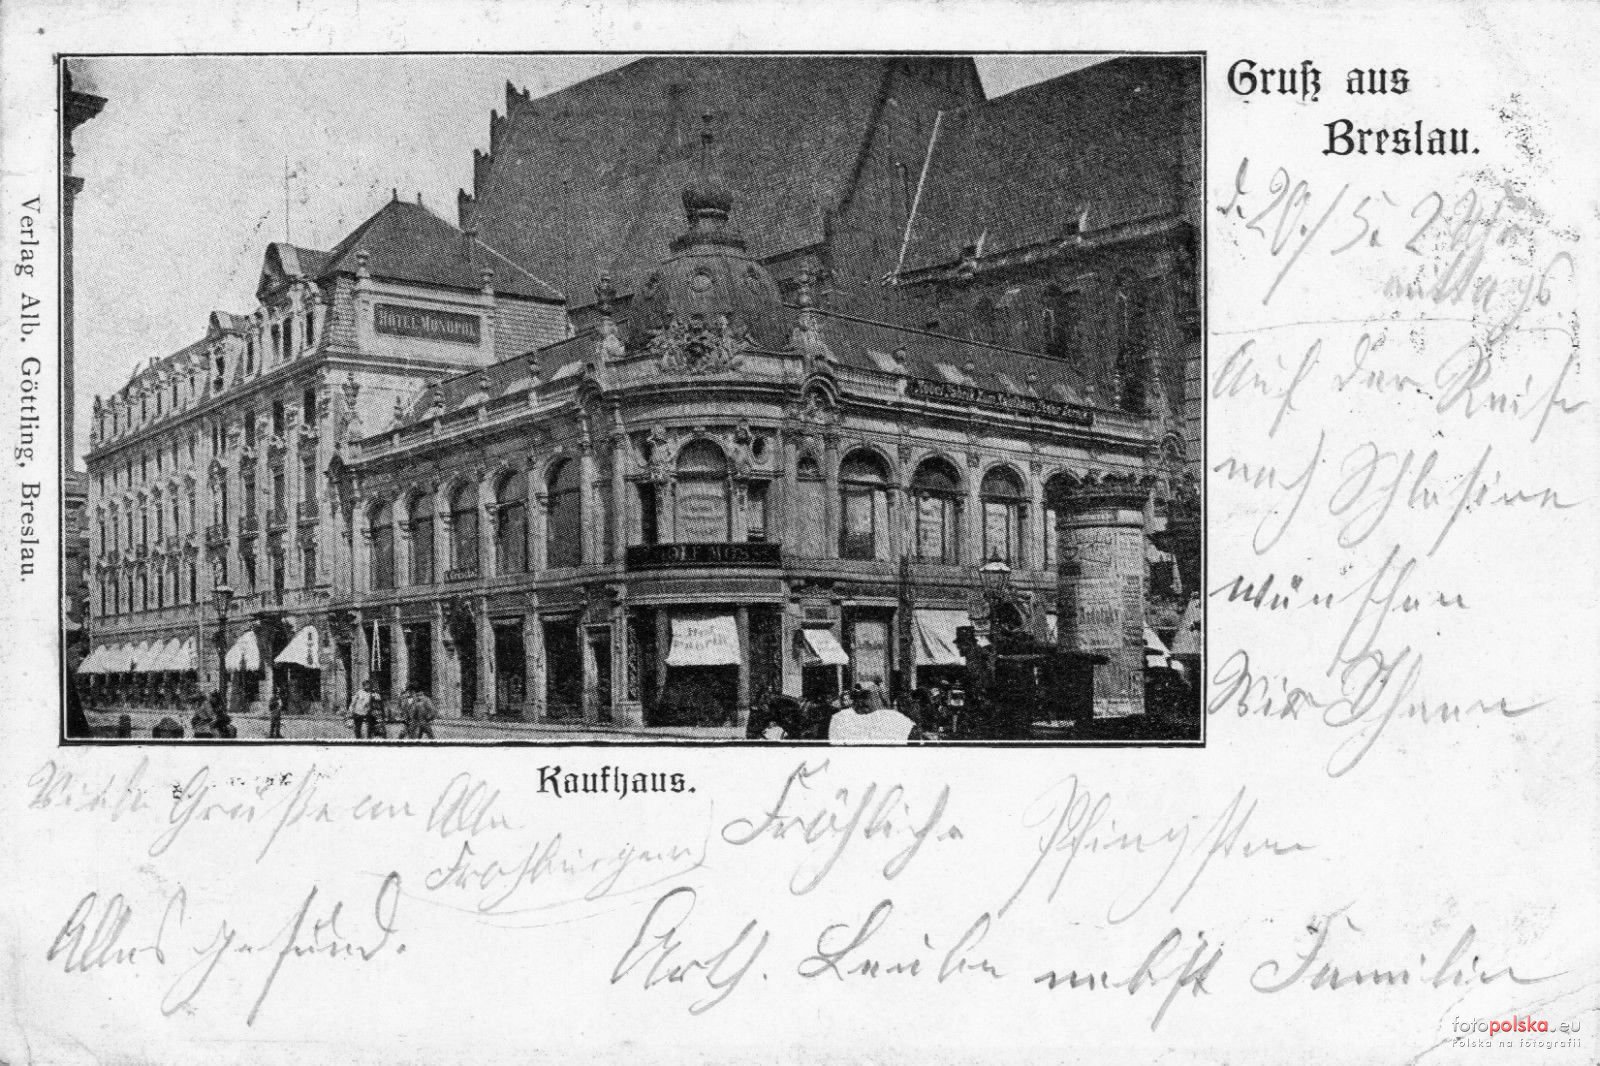 Gruß aus
Breslau.
d. 20./5. 2 Uhr
mittags
Auf der Reise
nach Schlesien
wünschen
Wir Ihnen
Verlag Alb. Göttling, Breslau.
HOTEL MONOPOL
Kaufhaus.
Viele Grüße an Alle
Frohburger
Fröhliche Pfingsten
Alles gesund.
Arth. Leube nebst Familie
fotopolska.eu
Polska na fotografii